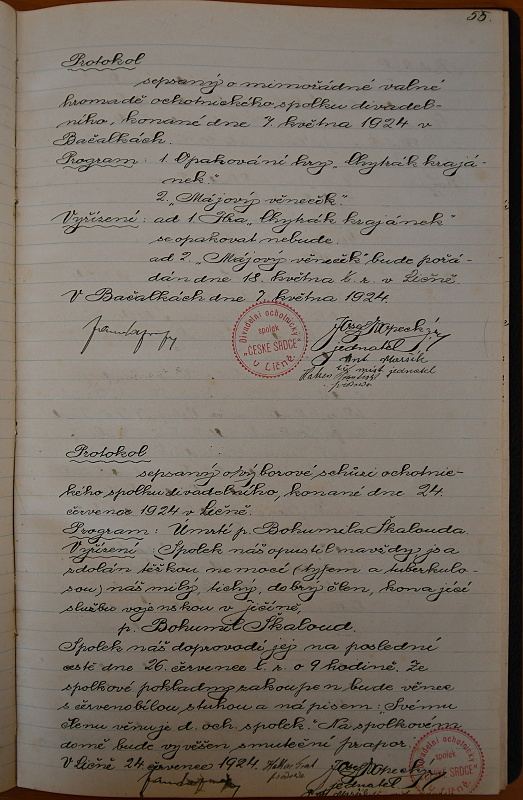 55.
Protokol
sepsaný o mimořádné valné
hromadě ochotnického spolku divadel-
ního, konané dne 7. května 1924 v
Bačalkách.
Program: 1. Opakování hry „Chytrák krajá-
nek."
2. „Májový věneček".
Vyřízení: ad 1. Hra „Chytrák krajánek"
se opakovat nebude.
ad 2. „Májový věneček" bude pořá-
dán dne 18. května t. r. v Ličně.
V Bačalkách dne 7. května 1924.
Divadelní ochotnický
spolek
„ČESKÉ SRDCE"
v Ličně
Josef Kopecký
jednatel
Ant Maršík
míst jednatel
Protokol
sepsaný o výborové schůzi ochotnic-
kého spolku divadelního, konané dne 24.
července 1924 v Ličně.
Program: Úmrtí p. Bohumila Škalouda.
Vyřízení: Spolek náš opustil navždy jsa
zdolán těžkou nemocí (tyfem a tuberkulo-
sou) náš milý, tichý, dobrý člen, konající
službu vojenskou v Jičíně,
p. Bohumil Škaloud.
Spolek náš doprovodí jej na poslední
cestě dne 26. července t. r. o 9 hodině. Ze
spolkové pokladny zakoupen bude věnec
s červenobílou stuhou a nápisem: „Svému
členu věnuje d. och. spolek." Na spolkovém
domě bude vyvěšen smuteční prapor.
V Ličně 24. července 1924.
Divadelní ochotnický
spolek
„ČESKÉ SRDCE"
Josef Kopecký
jednatel